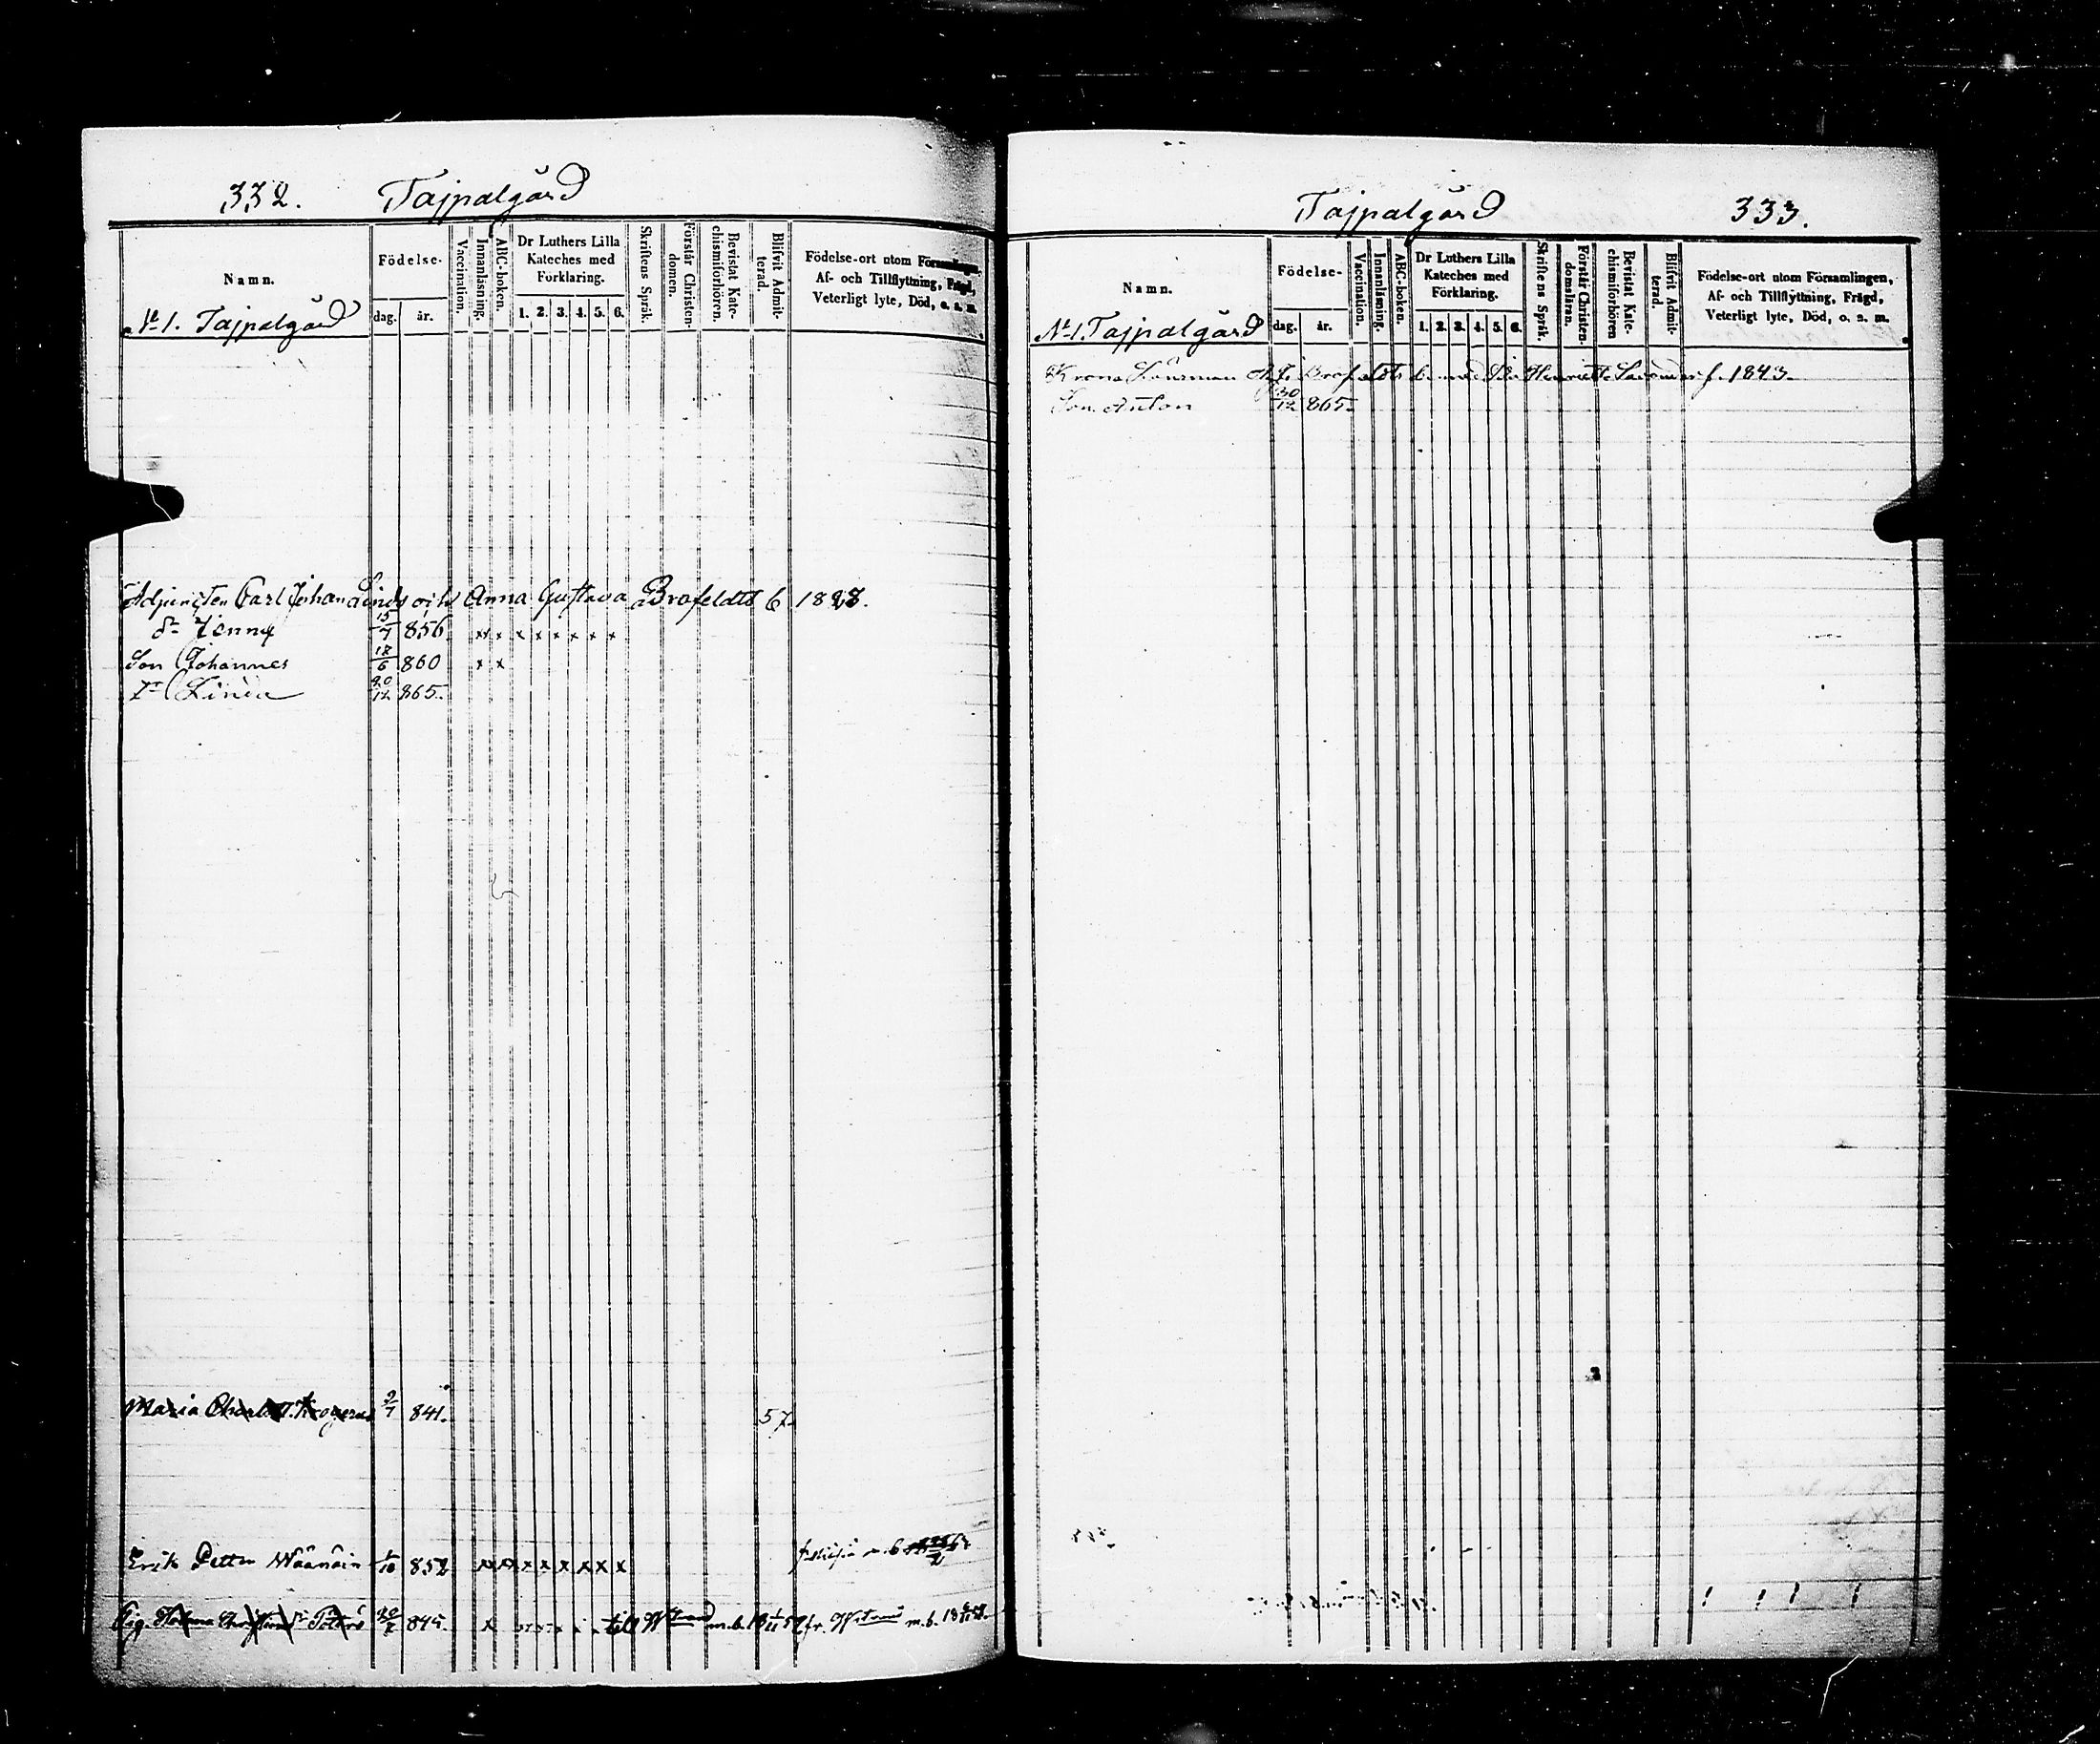 332. Tajpalgård
Namn.
Födelse-
dag. år.
Vaccination.
Innanläsning.
ABC-boken.
Dr Luthers Lilla
Kateches med
Förklaring.
1. 2. 3. 4. 5. 6.
Skriftens Språk.
Förstår Christen-
domen.
Bevistat Kate-
chismiförhören.
Blifvit Admit-
terad.
Födelse-ort utom Församlingen,
Af- och Tillflyttning, Frägd,
Veterligt lyte, Död, o. s. m.
№ 1. Tajpalgård
Adjuncten Carl Johan Linds och Anna Gustava Brofeldts b 1828.
dr Jenny 15/7 856. x x x x x x x x
Son Johannes 18/6 860 x x
dr Linéa 20/12 865.
Maria 2/7 841. 57.
Erik Petter Wäänäin 1/10 852 x x x x x x x x
845. x till m.b. fr. m.b.
Tajpalgård 333.
Namn.
Födelse-
dag. år.
Vaccination.
Innanläsning.
ABC-boken.
Dr Luthers Lilla
Kateches med
Förklaring.
1. 2. 3. 4. 5. 6.
Skriftens Språk.
Förstår Christen-
domsläran.
Bevistat Kate-
chismiförhören
Blifvit Admit-
terad.
Födelse-ort utom Församlingen,
Af- och Tillflyttning, Frägd,
Veterligt lyte, Död, o. s. m.
№ 1. Tajpalgård
Krono Länsman Brofeldts b. med Henriette f. 1843.
Son Anton 30/12 865.